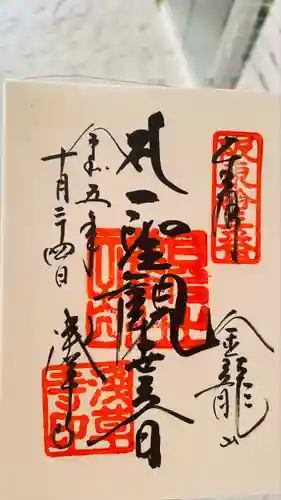 坂東拾三番
奉拝
金龍山
聖観世音
浅草寺
令和五年
十月二十四日
浅草寺印